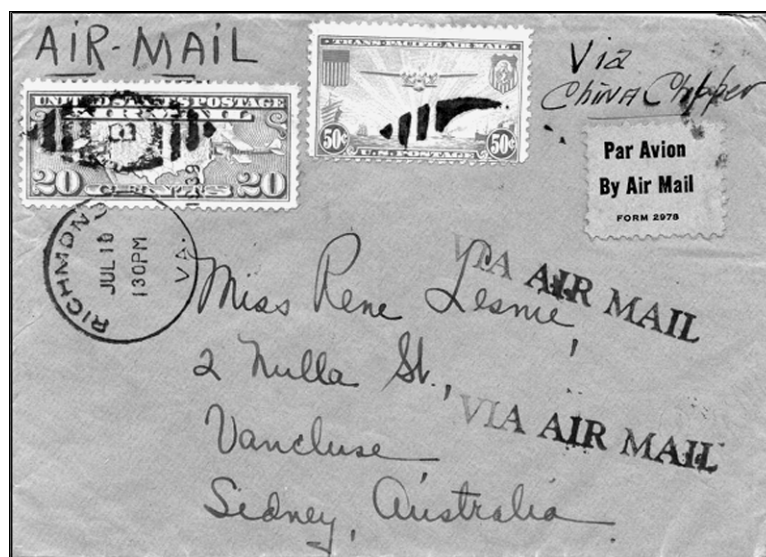 AIR-MAIL
UNITED STATES POSTAGE
20 CENTS 20
TRANS-PACIFIC AIR MAIL
50¢ 50¢
U.S. POSTAGE
Via
China Clipper
Par Avion
By Air Mail
FORM 2978
RICHMOND
JUL 10
130PM
VA.
1939
VIA AIR MAIL
Miss Rene Lesnie,
2 Nulla St.,
VIA AIR MAIL
Vancluse,
Sidney, Australia.